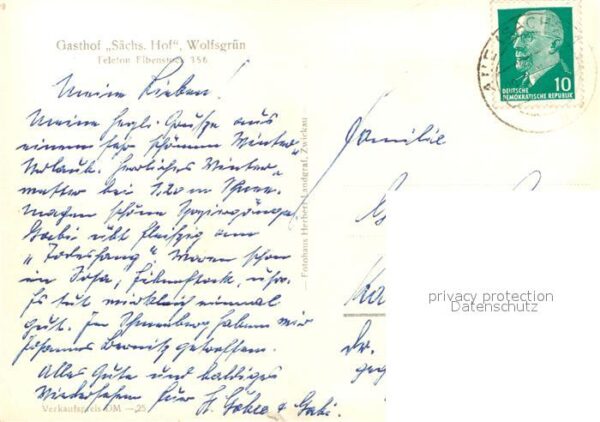 Gasthof „Sächs. Hof", Wolfsgrün
Telefon Eibenstock 356
Meine Lieben!
Meine herzl. Grüße aus
einem sehr schönen Winter-
Urlaub. Herrliches Winter-
wetter bei 1.20 m Schnee.
Machen schöne Spaziergänge,
Gabi übt fleißig am
"Todeshang". Waren schon
in Sosa, Eibenstock, usw.
Es tut wirklich einmal
gut. In Schneeberg haben wir
Johannes getroffen.
Alles Gute und baldiges
Wiedersehen Eure H. + Gabi.
Verkaufspreis DM —.25
— Fotohaus Herbert Landgraf, Zwickau
Familie
Dr.
DEUTSCHE
DEMOKRATISCHE REPUBLIK
10
privacy protection
Datenschutz